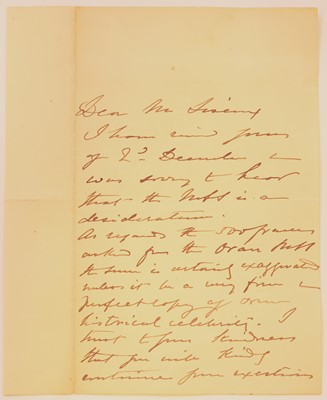 Dear Mr
I have recd yours
of 2d December &
was sorry to hear
that the MSS is a
desideratum.
As regards the 500 francs
asked for the Oran MSS
the sum is certainly exaggerated
unless it be a very fine &
perfect copy of some
historical celebrity. I
trust to your kindness
that you will kindly
continue your exertions